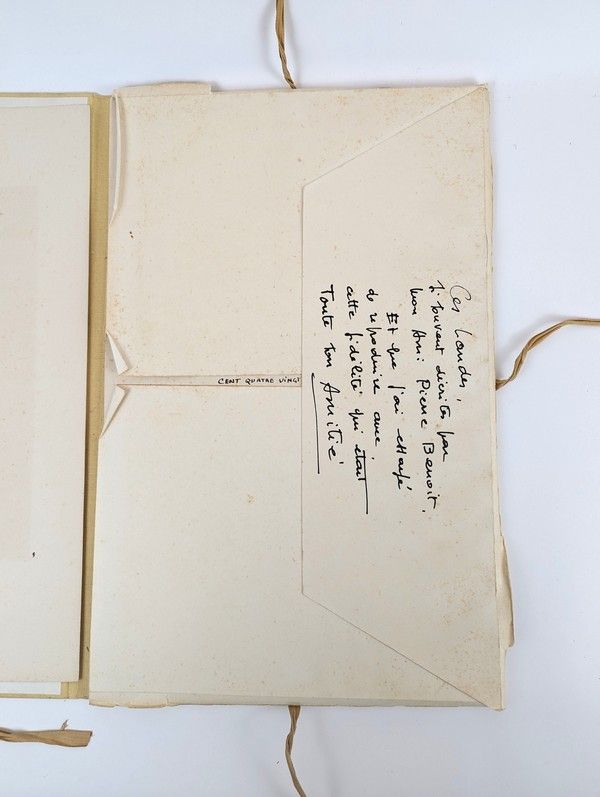 Ces Landes,
si souvent décrites par
mon Ami Pierre Benoit,
Et que j'ai essayé
de reproduire avec
cette fidélité qui était
Toute son Amitié
CENT QUATRE VINGT